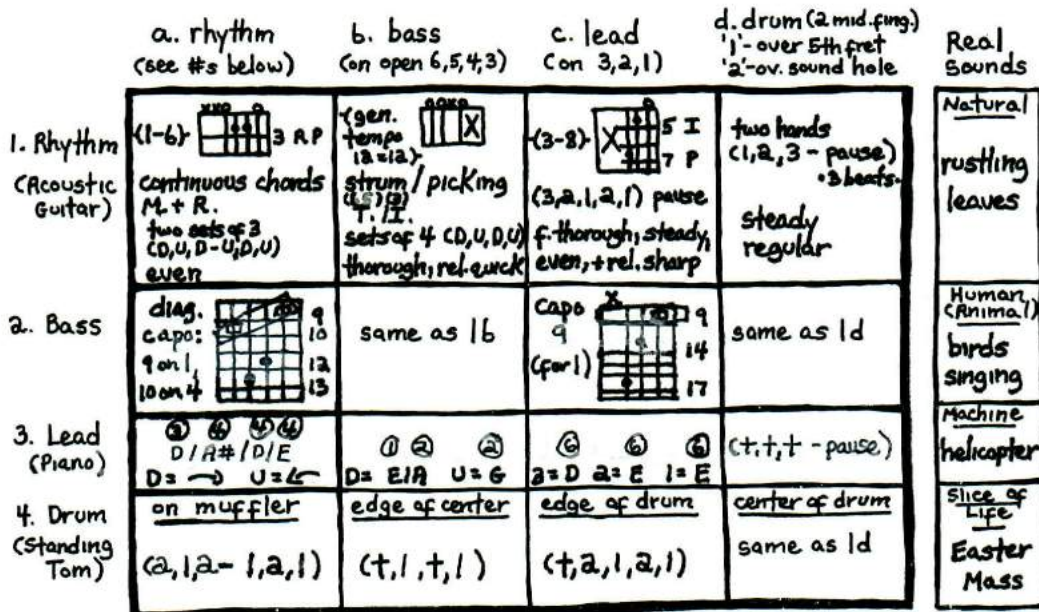 a. rhythm
(see #s below)
b. bass
(on open 6,5,4,3)
c. lead
(on 3,2,1)
d. drum (2 mid. fing.)
'1'-over 5th fret
'2'-ov. sound hole
Real
Sounds
1. Rhythm
(Acoustic
Guitar)
{1-6}
xxo o
3 R P
continuous chords
M. + R.
two sets of 3
(D,U,D-U,D,U)
even
{gen.
tempo
1a=1a}
ooxo
X
strum/picking
T. / I.
sets of 4 (D,U,D,U)
thorough, rel. quick
{3-8}
o
X
5 I
7 P
(3,2,1,2,1) pause
f. thorough, steady,
even, + rel. sharp
two hands
(1,2,3 - pause)
·3 beats·
steady
regular
Natural
rustling
leaves
2. Bass
diag.
capo:
9 on 1,
10 on 4
9
10
12
13
same as 1b
capo
9
(for 1)
x
9
14
17
same as 1d
Human
(Animal)
birds
singing
3. Lead
(Piano)
③ ④ ④ ④
D / A# / D / E
D = → U = ←
① ② ②
D = E/A U = G
⑥ ⑥ ⑥
3 = D 2 = E 1 = E
(t, t, t - pause)
Machine
helicopter
4. Drum
(Standing
Tom)
on muffler
(2,1,2 - 1,2,1)
edge of center
(t, 1, t, 1)
edge of drum
(t, 2, 1, 2, 1)
center of drum
same as 1d
Slice of
Life
Easter
Mass